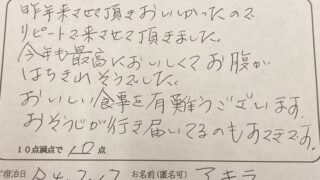 昨年来させて頂きおいしかったので
リピートで来させて頂きました。
今年も最高においしくてお腹が
はちきれそうでした。
おいしい食事を有難うございます。
おそうじが行き届いてるのもすてきです。
10点満点で 10 点
宿泊日 R4.7.17 お名前(匿名可) アキラ